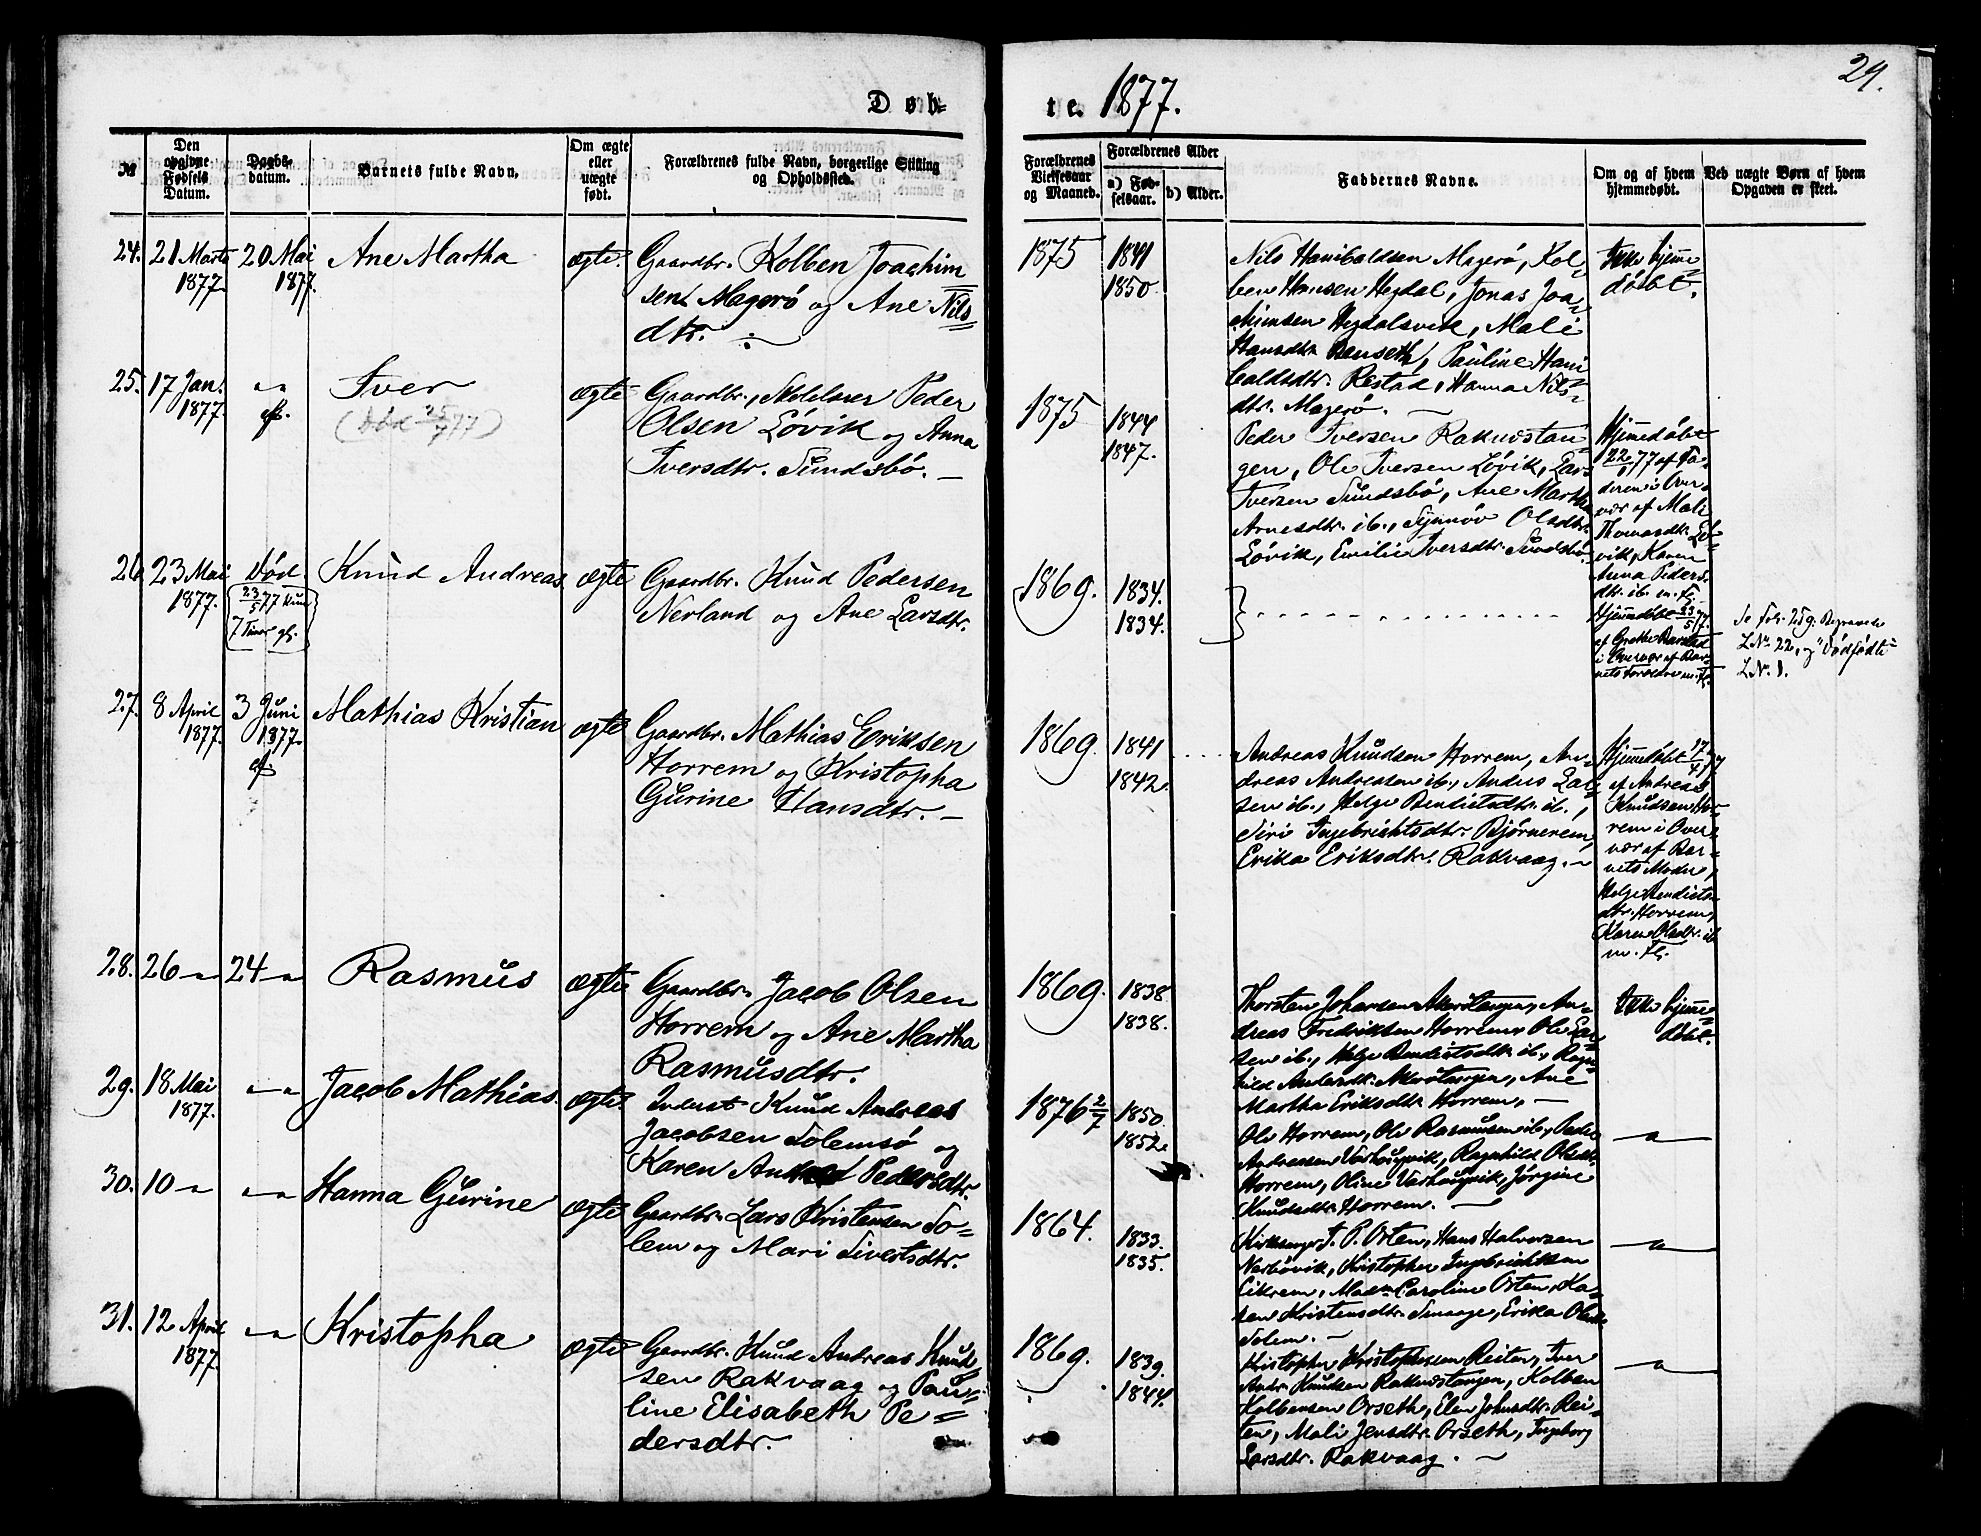 29.
Døb-
te. 1877.
№
Den opgivne Fødsels Datum.
Daabs-datum.
Barnets fulde Navn,
Om ægte eller uægte født.
Forældrenes fulde Navn, borgerlige Stilling og Opholdssted.
Forældrenes Vielsesaar og Maaned.
Forældrenes Alder
a) Fød-selsaar.
b) Alder.
Faddernes Navne.
Om og af hvem hjemmedøbt.
Ved uægte Børn af hvem Opgaven er skeet.
24. 21 Marts 1877. 20 Mai 1877. Ane Martha ægte.
Gaardbr. Kolben Joachim
sen Magerö og Ane Nils-
dtr. ~
1875 1841 1850.
Nils Hanibaldsen Magerö, Kol-
ben Hansen Hegdal, Jonas Joa-
chimsen Hegdalsvik, Mali
Hansdtr. Renseth, Pauline Hani
baldsdtr. Restad, Hanna Nils-
dtr. Magerö. ~
Ikke hjemme
döbt.
25. 17 Jan. 1877. Iver ægte
Gaardbr., Peder
Olsen Lövik og Anna
Iversdtr. Sundsbö. —
1875 1844 1847.
Peder Iversen Rakvdstan
gen, Ole Iversen Lövik, Lars
Iversen Sundsbö, Ane Martha
Arnesdtr. ib., Synnöv Olsdtr.
Lövik, Emilie Iversdtr. Sundsbö
Hjemmedöbt
22/1 77 af Fa-
deren i Over-
vær af Mali
Thomasdtr. Lö-
vik, Karen
Anna Peders-
dtr. ib. m. fl.
26. 23 Mai 1877. Död 23/5 77 kun 7 Timer gl. Knud Andreas ægte
Gaardbr. Knud Pedersen
Nerland og Ane Larsdtr.
1869. 1834. 1834.
Hjemmdbt 23/5 77.
af Grethe
i Overvær af Bar-
nets Forældre m. fl.
Se Fol. 259. Begravede
L.№ 22, og "Dödfödte"
L.№ 1.
27. 8 April 1877. 3 Juni 1877. Mathias Kristian ægte
Gaardbr. Mathias Eriksen
Horrem og Kristopha
Gurine Hansdtr. —
1869. 1841 1842.
Andreas Knudsen Horrem, An-
dreas Andreasen ib., Anders Lar-
sen ib., Helge Bendictsdtr. ib.,
Siri Ingebrichtsdtr. Björnerem,
Erika Eriksdtr. Rakvaag. ~
Hjemmedöbt 17/4 77
af Andreas
Knudsen Hor-
rem i Over-
vær af Bar-
nets Moder,
Helge Bendicts-
dtr. Horrem,
Karen Olsdtr. ib.
m. fl.
28. 26 -"- 24 -"- Rasmus ægte
Gaardbr. Jacob Olsen
Horrem og Ane Martha
Rasmusdtr.
1869. 1838. 1838.
Thorsten Johansen Akerstangen, An-
dreas Fredriksen Horrem, Ole Lar-
sen ib., Helge Bendictsdtr. ib., Ragn-
hild Andersdtr. Akerstangen, Ane
Martha Eriksdtr. Horrem, —
Ikke hjemme
döbt.
29. 18 Mai 1877. -"- Jacob Mathias ægte
Inderst Knud Andreas
Jacobsen Solemsö og
Karen Pedersdtr.
1876 2/7 1850. 1852.
Ole Horrem, Ole Rasmusen ib., Peder
Andreasen Varhougvik, Ragnhild Olsdtr.
Horrem, Oline Varhougvik, Jörgine
Knudsdtr. Horrem. ~
-"-
30. 10 -"- -"- Hanna Gurine ægte
Gaardbr. Lars Kristensen So-
lem og Mari Sivertsdtr.
1864. 1833. 1835.
Kirkesanger P. Orten, Hans Halvorsen
Nerbövik, Kristopher Ingebrichtsen
Eikrem, Mad. Caroline Orten, Ka-
ren Kristensdtr. Smaage, Erika Olsdtr.
Solem. ~
-"-
31. 12 April 1877. -"- Kristopha ægte
Gaardbr. Knud Andreas Knud-
sen Rakvaag og Pau-
line Elisabeth Pe-
dersdtr.
1869. 1839. 1844.
Kristopher Kristophersen Reiten, Iver
Andr. Knudsen Rakvdstangen, Kolben
Kolbensen Orseth, Elen Johnsdtr. Rei-
ten, Mali Jensdtr. Orseth, Ingeborg
Larsdtr. Rakvaag. ~
-"-